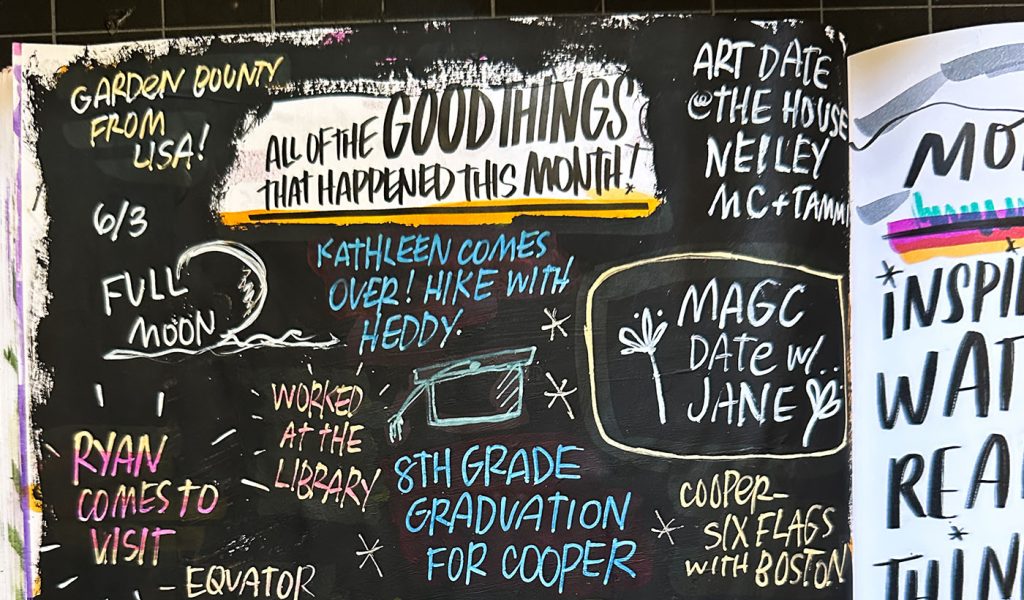 GARDEN BOUNTY
FROM
LISA!
ALL OF THE GOOD THINGS
THAT HAPPENED THIS MONTH!
ART DATE
@THE HOUSE
NEBLEY
MC + TAMMI
6/3
FULL
MOON
KATHLEEN COMES
OVER! HIKE WITH
HEDDY.
MAGC
DATE W/..
JANE
WORKED
AT THE
LIBRARY
RYAN
COMES TO
VISIT
8TH GRADE
GRADUATION
FOR COOPER
COOPER-
SIX FLAGS
WITH BOSTON
- EQUATOR
MO
INSPI
WAT
REA
THIN